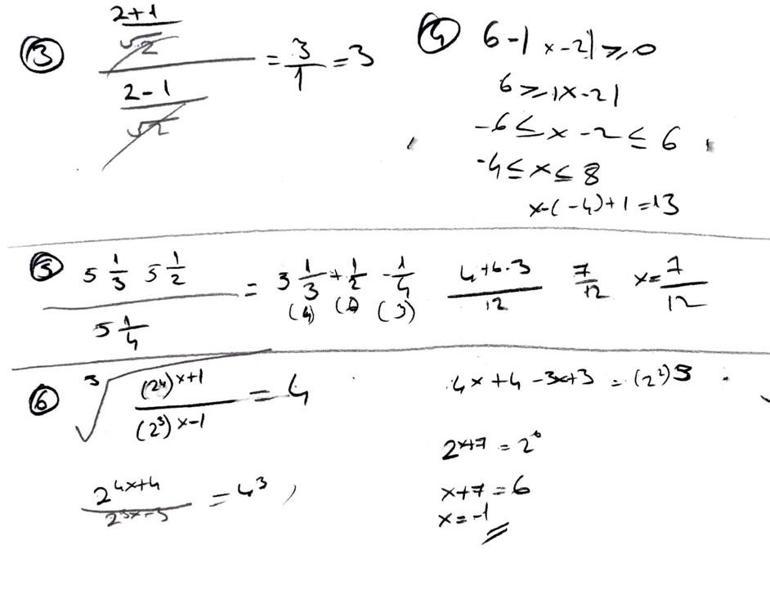 ③ (2+1)/√2 / (2-1)/√2 = 3/1 = 3
④ 6-|x-2| ⩾ 0
6 ⩾ |x-2|
-6 ≤ x-2 ≤ 6
-4 ≤ x ≤ 8
x-(-4)+1=13
⑤ 5^(1/3) 5^(1/2) / 5^(1/4) = 3 1/3 + 1/2 - 1/4 (4+6-3)/12 7/12 x = 7/12
(4) (6) (3)
⑥ ³√((2⁴)^(x+1) / (2³)^(x-1)) = 4
2^(4x+4) / 2^(3x-3) = 4³
4x+4-3x+3 = (2²)3
2^(x+7) = 2⁶
x+7 = 6
x = -1